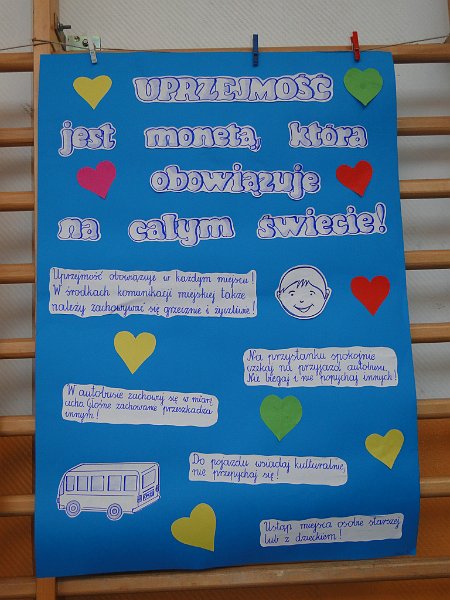 UPRZEJMOŚĆ
jest monetą, która
obowiązuje
na całym świecie!
Uprzejmość obowiązuje w każdym miejscu!
W środkach komunikacji miejskiej także
należy zachowywać się grzecznie i życzliwie!
Na przystanku spokojnie
czekaj na przyjazd autobusu.
Nie biegaj i nie popychaj innych!
W autobusie zachowuj się w miarę
cicho. Głośne zachowanie przeszkadza
innym!
Do pojazdu wsiadaj kulturalnie,
nie przepychaj się!
Ustąp miejsca osobie starszej
lub z dzieckiem!